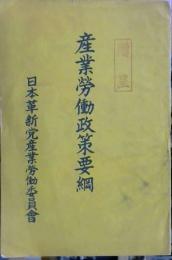 贈呈
産業勞働政策要綱
日本革新党産業勞働委員會